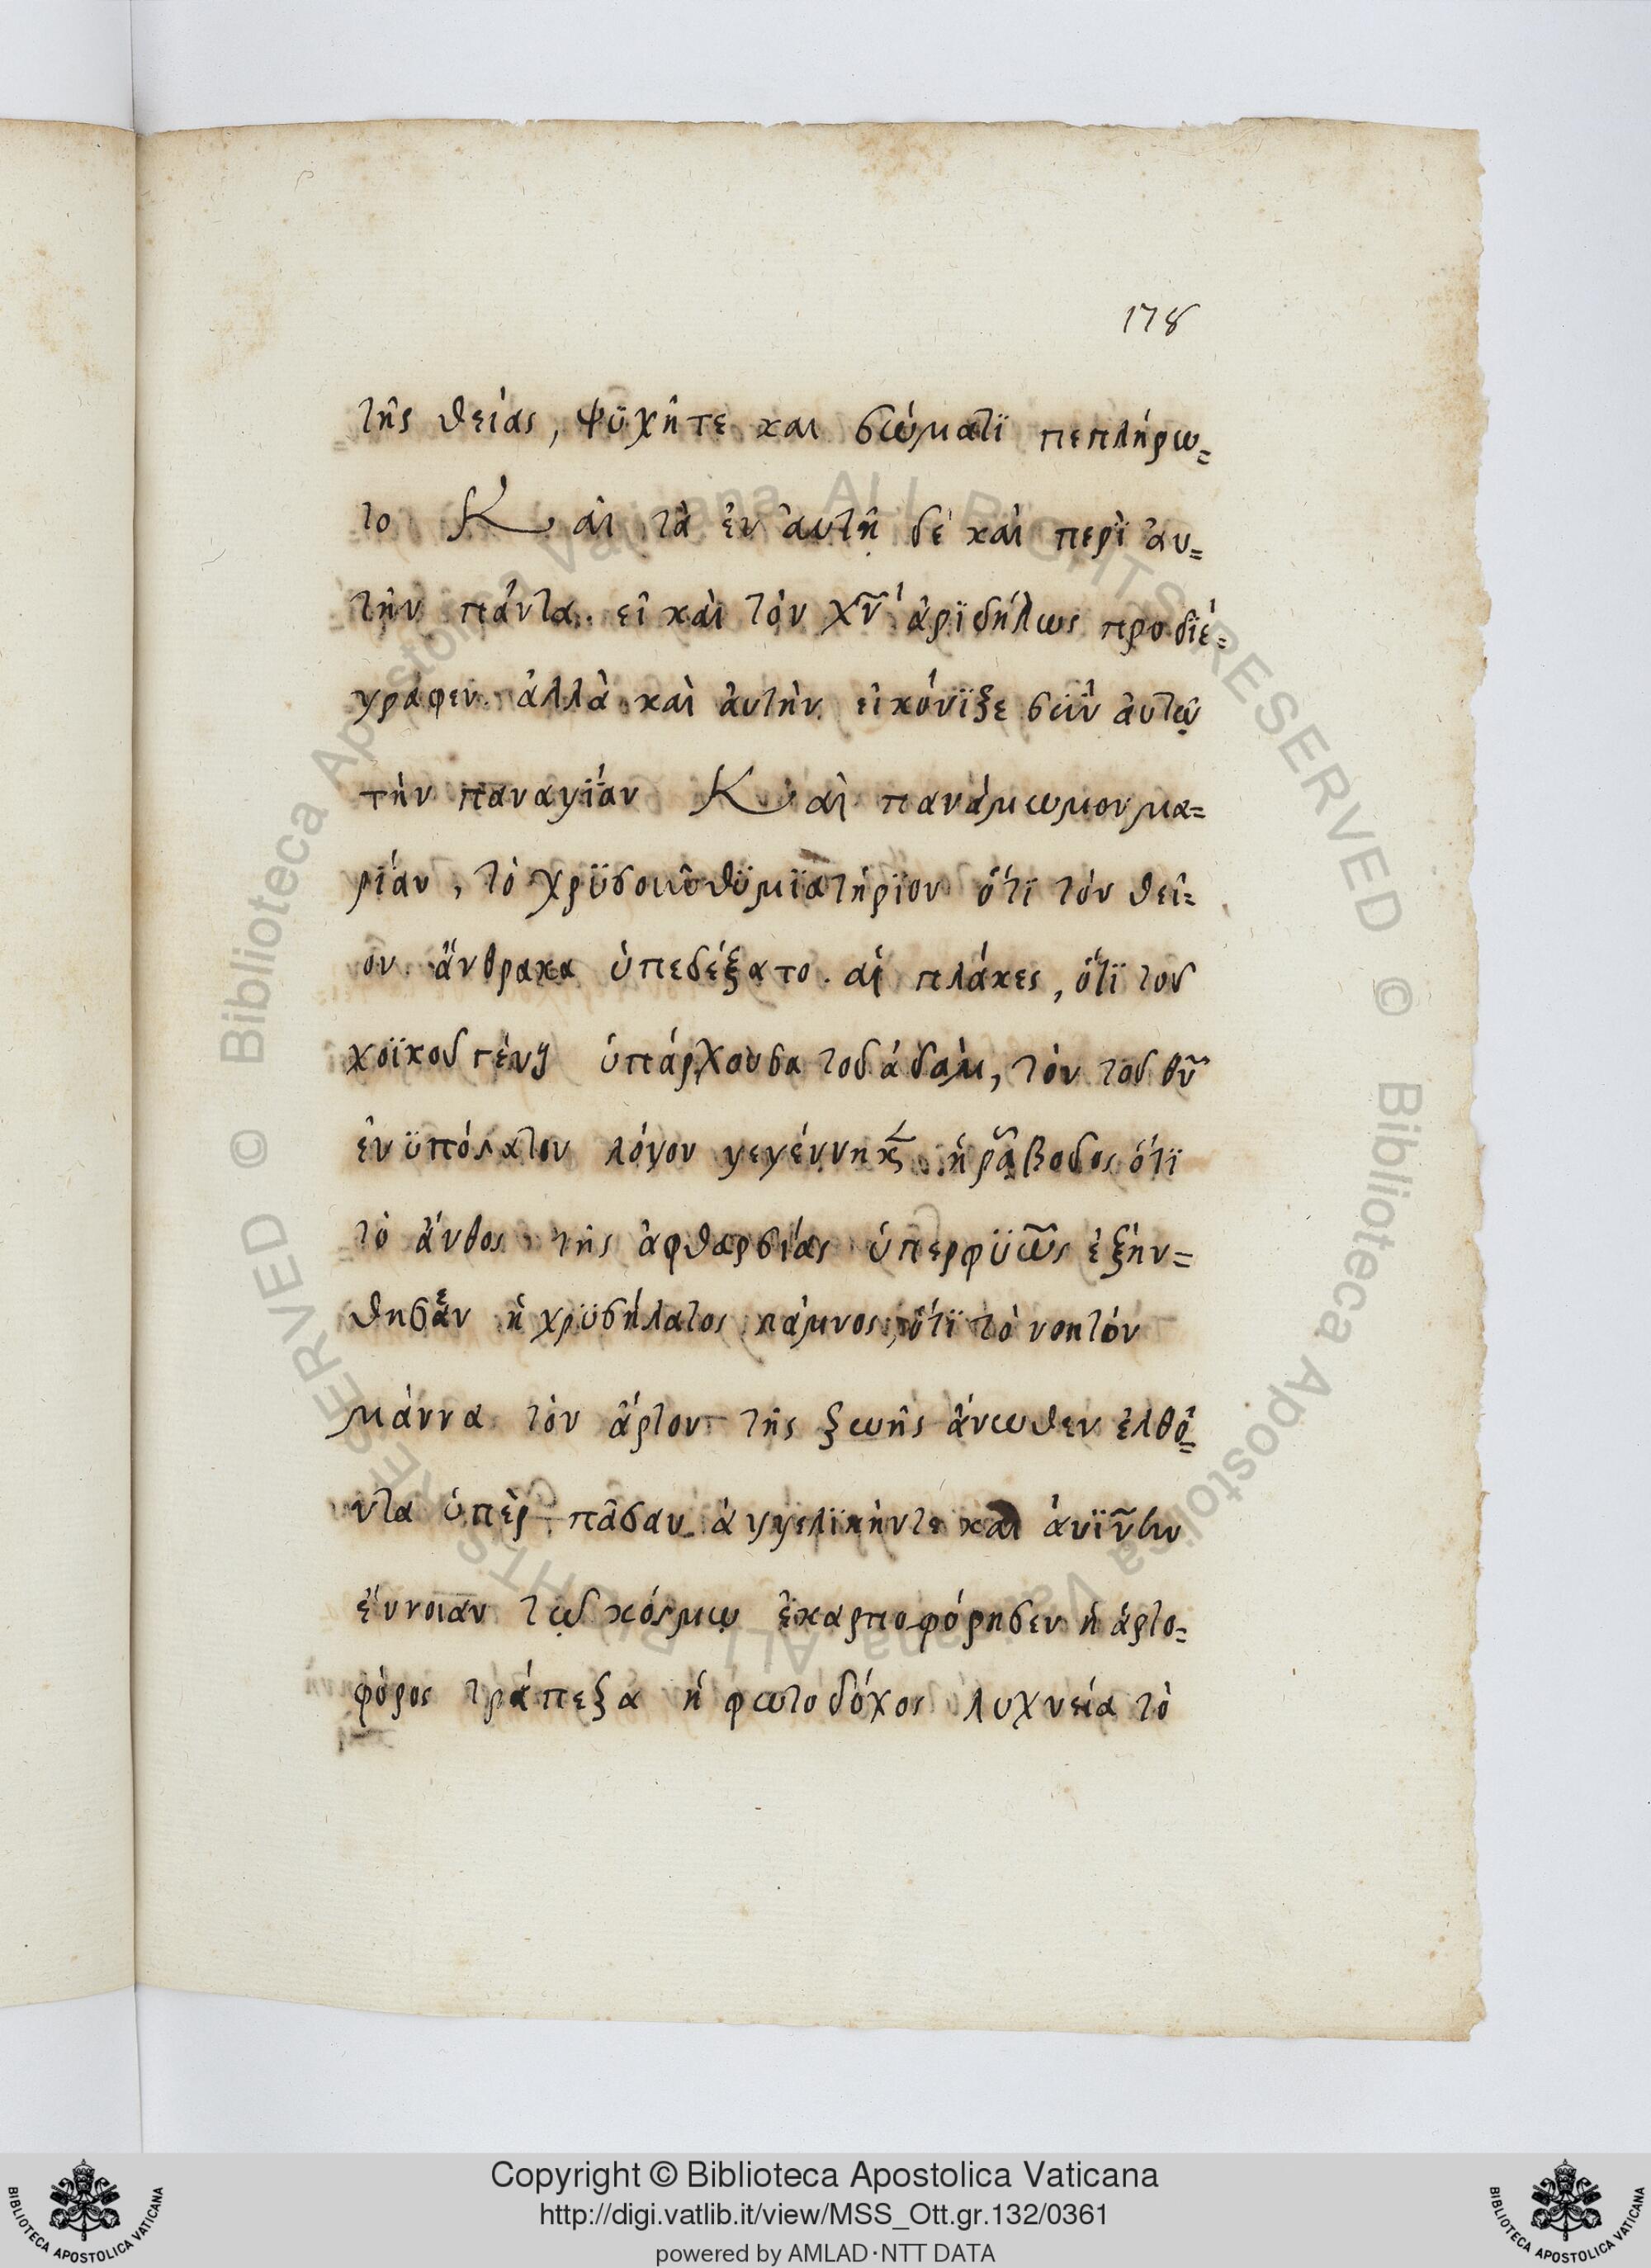 178
τῆς θείας, ψϋχῆτε και σώματϊ πεπλήρω=
το Καὶ τὰ ἐν ἀυτῆ δὲ καὶ περὶ ἀυ=
τὴν πάντα. εἰ καὶ τὸν χν̃ ἀρϊδήλως προδϊέ=
γραφεν. ἀλλὰ καὶ ἀυτὴν εἰκόνϊζε σὺν ἀυτῷ
τὴν παναγίαν Καὶ πανάμωμον μα=
ρίαν, τὸ χρϋσοῦν θϋμϊατήρϊον ὅτϊ τὸν θεῖ=
ον ἄνθρακα ὑπεδέξατο. αἱ πλάκες, ὅτϊ τοῦ
χοϊκοῦ γένȣ ὑπάρχουσα τοῦ ἀδὰμ, τὸν τοῦ θυ̃
ἐνϋπόστατον λόγον γεγέννηκε ἡ ράβοδος ὅτϊ
τὸ ἄνθος τῆς ἀφθαρσίας ὑπερφϋῶς ἐξήν=
θησεν ἡ χρϋσήλατος στάμνος, ὅτϊ τὸ νοητὸν
μάννα τὸν ἄρτον τῆς ζωῆς ἄνωθεν ἐλθό=
ντα ὑπὲρ πᾶσαν ἀγγελϊκήντε και
ἔννοιαν τῷ κόσμῳ ἐκαρποφόρησεν ἡ ἀρτο=
φόρος τράπεζα ἡ φωτοδόχος λυχνεία τὸ
Copyright © Biblioteca Apostolica Vaticana
http://digi.vatlib.it/view/MSS_Ott.gr.132/0361
powered by AMLAD·NTT DATA
BIBLIOTECA APOSTOLICA VATICANA
BIBLIOTECA APOSTOLICA VATICANA
© Biblioteca Apostolica Vaticana ALL RIGHTS RESERVED
© Biblioteca Apostolica Vaticana ALL RIGHTS RESERVED